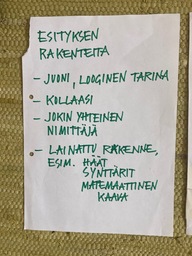 ESITYKSEN
RAKENTEITA
- JUONI, LOOGINEN TARINA
- KOLLAASI
- JOKIN YHTEINEN
NIMITTÄJÄ
- LAINATTU RAKENNE,
ESIM. HÄÄT
SYNTTÄRIT
MATEMAATTINEN
KAAVA